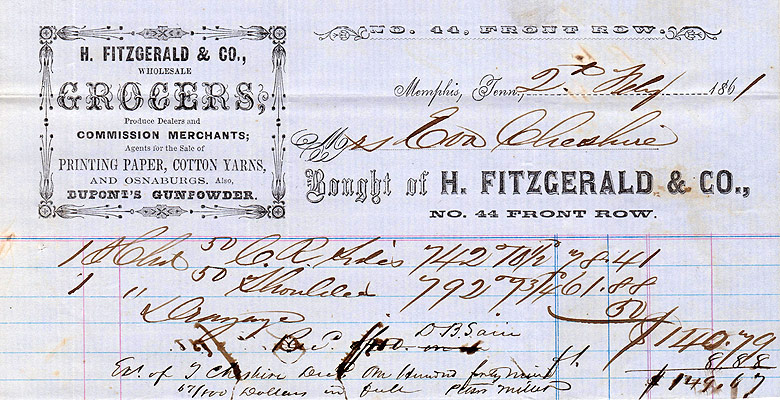 H. FITZGERALD & CO.,
WHOLESALE
GROCERS,
Produce Dealers and
COMMISSION MERCHANTS;
Agents for the Sale of
PRINTING PAPER, COTTON YARNS,
AND OSNABURGS. Also,
DUPONT'S GUNPOWDER.
NO. 44, FRONT ROW.
Memphis, Tenn., 2d Feby 1861
Mrs Eva Cheshire
Bought of H. FITZGERALD & CO.,
NO. 44 FRONT ROW.
1 50 C. R. Sides 742 10½ 78.41
1 " 50 Shoulders 792 61.88
Drayage 50
$140.79
8.88
$149.67
Ex. of T Cheshire Decd One Hundred forty Nine
67/100 Dollars in full Peter Miller